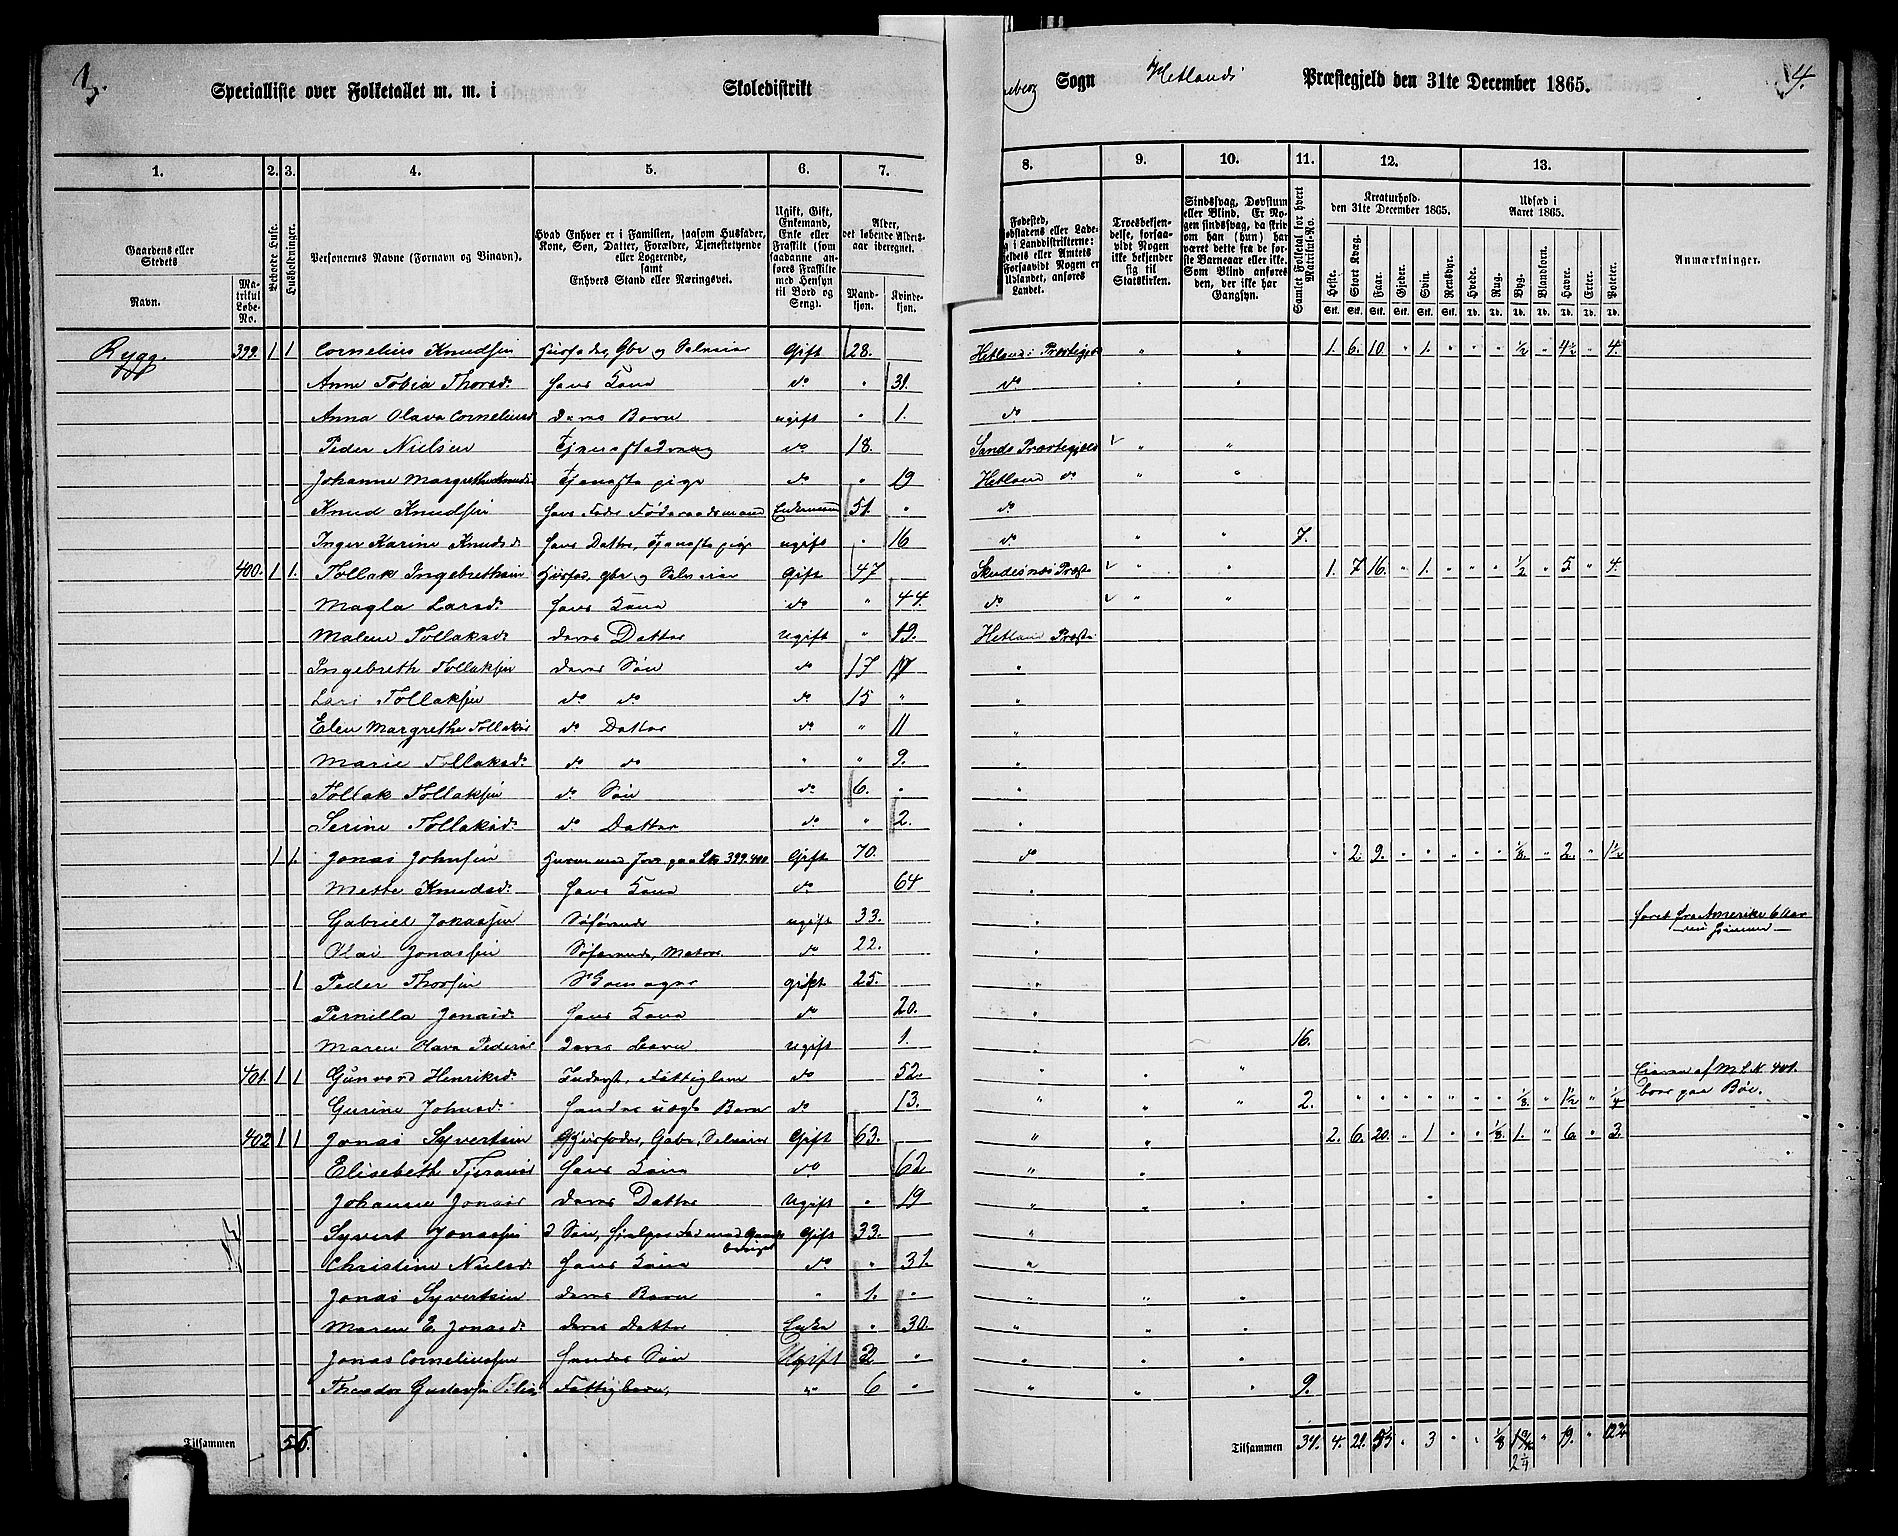 3.
Specialliste over Folketallet m. m. i Skoledistrikt
Sogn Hetlands Præstegjeld den 31te December 1865.
4.
1. 2. 3. 4. 5. 6. 7. 8. 9. 10. 11. 12. 13.
Gaardenes eller Stedets
Navn.
Matrikul Løbe-No.
Beboede Huse.
Husholdninger.
Personernes Navne (Fornavn og Binavn).
Hvad Enhver er i Familien, saasom Husfader, Kone, Søn, Datter, Forældre, Tjenestetyende eller Logerende, samt Enhvers Stand eller Næringsvei.
Ugift, Gift, Enkemand, Enke eller Fraskilt (som saadanne anføres Fraskilte med Hensyn til Bord og Seng).
Alder, det løbende Aldersaar iberegnet.
Mandkjøn. Kvindekjøn.
Fødested,
Troesbekjendelse, forsaavidt Nogen ikke bekjender sig til Statskirken.
Sindssvag, Døvstum eller Blind. Er Nogen sindssvag, da skrives om han (hun) har været dette fra de første Barneaar eller ikke. Som Blind anføres den, der ikke har Gangsyn.
Samlet Folketal for hvert Matrikul-No.
Kreaturhold den 31te December 1865.
Heste. Stort Kvæg. Faar. Gjeder. Svin. Rensdyr.
Udsæd i Aaret 1865.
Hvede. Rug. Byg. Blandkorn. Havre. Erter. Poteter.
Anmærkninger.
Rygg. 399. 1 1 Cornelius Knudsen Husfader, Gbr og Selveier Gift 28. Hetlands Præstegjeld " " 1. 6. 10. " 1. " " " ½ " 4½ " 4.
Anne Tobia Thorsd. Hans Kone do " 31. do
Anna Olava Corneliusd Deres Barn ugift " 1. do
Peder Nielsen Tjenestedreng do 18. Sands Præstegjeld " "
Johanne Margrethe Knudsd Tjenestepige do " 19 Hetland do " "
Knud Knudsen Hans Fader Føderaadsmand Enkemand 51. " do
Inger Karine Knudsd Hans Datter, Tjenestepige ugift " 16 do " " 7.
400. 1 1. Tollak Ingebretsen Husfad. gbr og Selveier Gift 47 Skudesnæs Præst. " " 1. 7 16. " 1. " " " ½ " 5 " 4.
Magla Larsd. Hans Kone do " 44. do " "
Malene Tollaksd. deres Datter Ugift " 19. Hetland Præst.
Ingebreth Tollaksen deres Søn do 17 "
Lars Tollaksen do do do 15 " "
Elen Margrethe Tollaksd do Datter do " 11 "
Marie Tollaksd. do do " " 9. "
Tollak Tollaksen do Søn do 6. " "
Serine Tollaksd. do Datter do " 2. "
1 1. Jonas Johnsen Husmand med Jord paa 399.400 Gift 70. do " 2. 9. " " " " " ⅛ " 2. " 1½
Mette Knudsd. Hans Kone do 64 "
Gabriel Jonassen Søfarende ugift 33. "
Olai Jonassen Søfarende, Matros do 22. "
1 Peder Thorsen gift 25. "
Pernilla Jonasd. Hans Kone do 20. "
Maren Olava Pedersd deres Barn Ugift 1. " 16.
401. 1 1 Gunvord Henriksd. Inderst, Fattiglem do 52. " " " Eieren af M.L.N. 401. boer paa Bøe.
Gurine Johnsd. Hendes uægte Barn do 13. " " " 2. " " " " " " " " ⅛ " 1½ " ¼
402 1 1 Jonas Syvertsen Husfader, Gbr, Selveier Gift 63. " " 2. 6. 20. " 1 " " ⅛ 1. " 6. " 3.
Elisabeth Hans Kone do 62 " "
Johanne Jonasd deres Datter Ugift " 19 " " "
Syvert Jonassen D Søn, hjelper Fad. med Gaards Gift 33. "
Christine Nielsd. Hans Kone do " 31. "
Jonas Syvertsen deres Barn " 1. " " " "
Maren E. Jonasd. deres Datter Enke " 30. " " "
Jonas Corneliussen Hendes Søn Ugift 2 " " " "
Theodor Gustavsen Fattigbarn, " 6 " " " " 9.
Tilsammen 5 6. Tilsammen 34. 4. 21. 55 " 3 " " ⅛ " 19. "
2¼